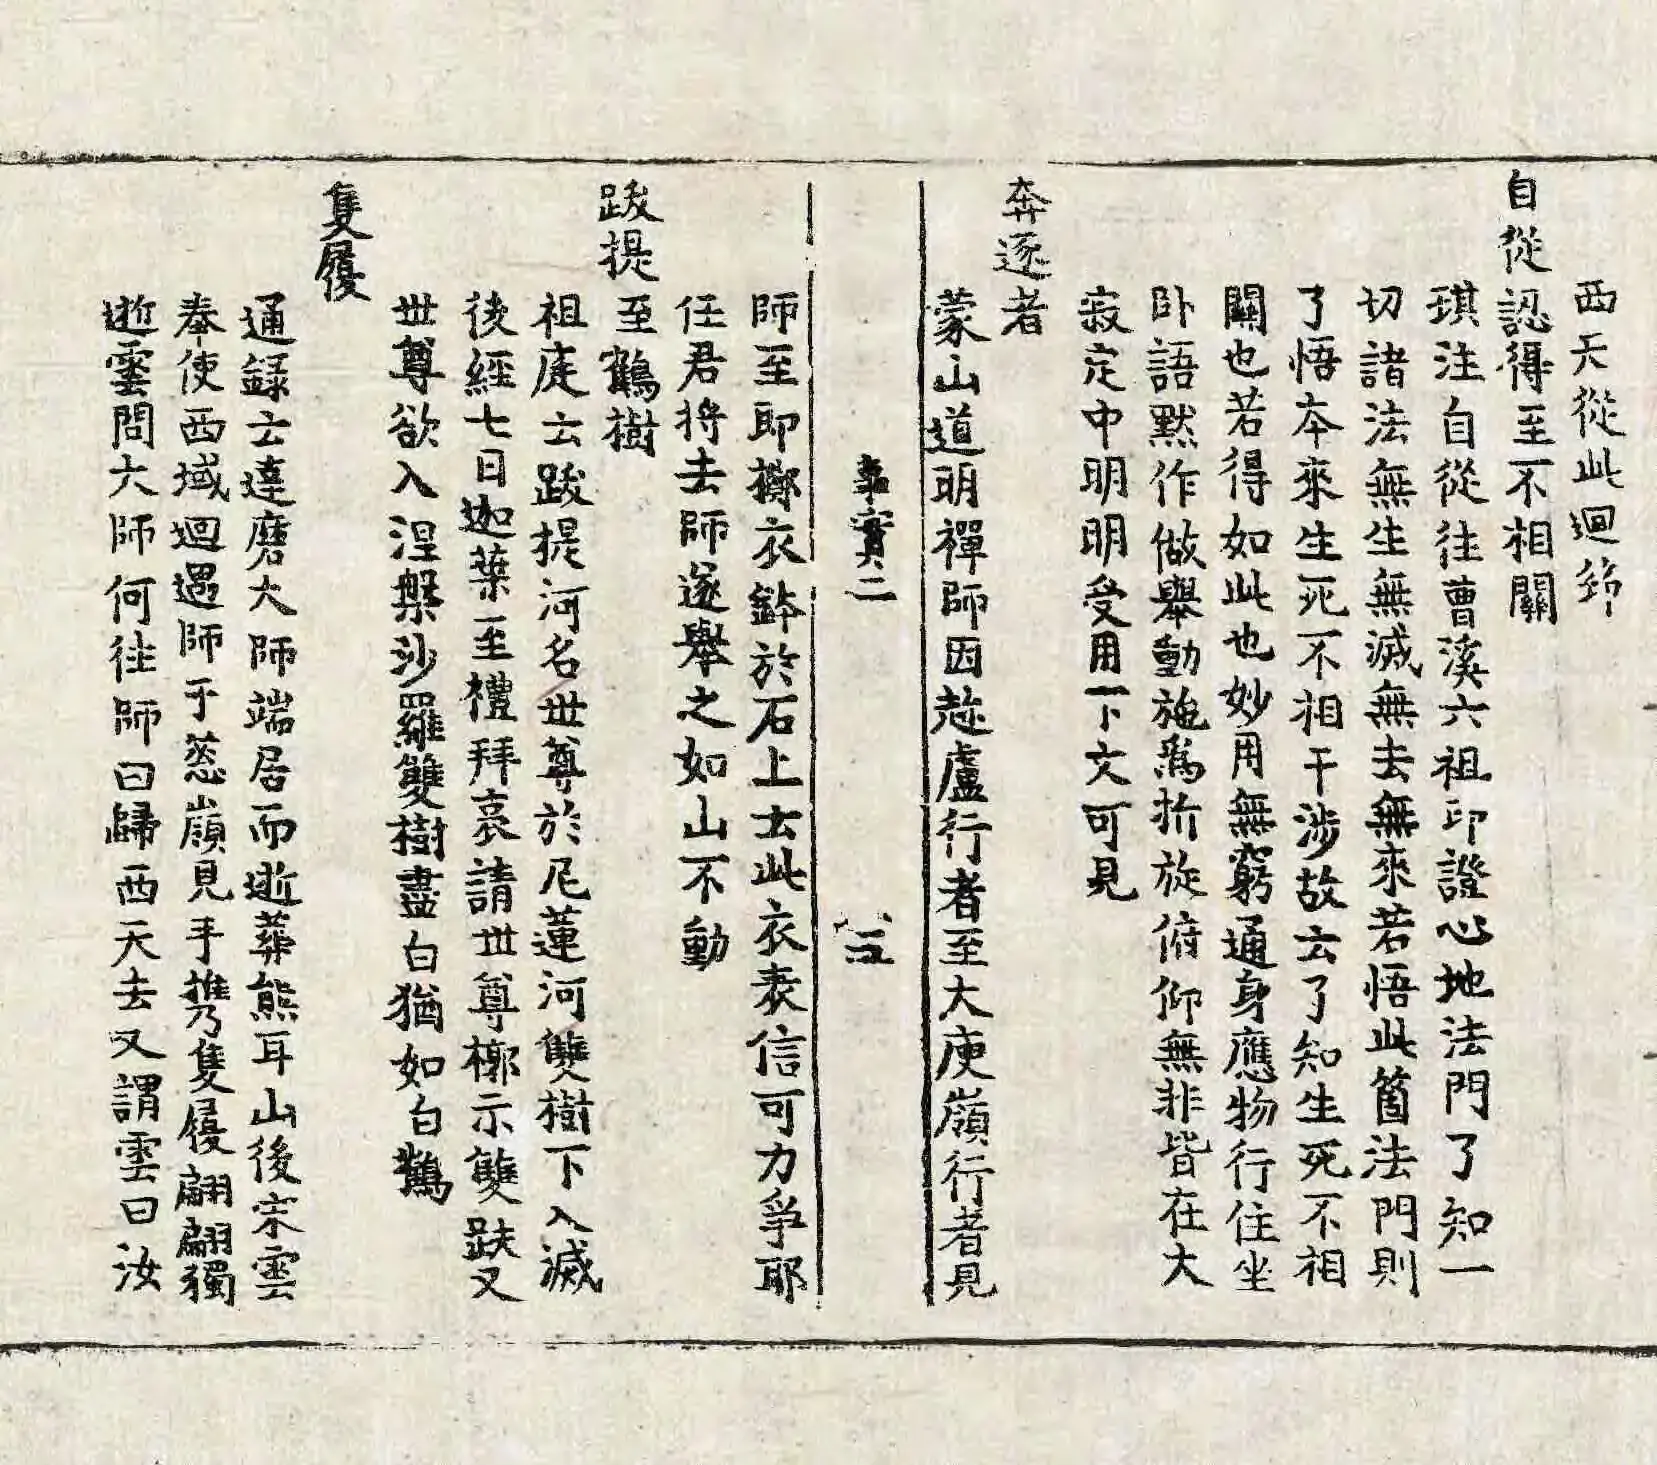 西天從此迴䇿
自從認得至不相關
琪注自從往曹溪六祖印證心地法門了知一
切諸法無生無滅無去無來若悟此箇法門則
了悟本來生死不相干涉故云了知生死不相
關也若得如此也妙用無窮通身應物行住坐
卧語默作做舉動施爲折旋俯仰無非皆在大
寂定中明明受用下文可見
奔逐者
蒙山道明禪師因趂盧行者至大庾嶺行者見
事實二
十五
師至即擲衣鉢於石上云此衣表信可力爭耶
任君將去師遂舉之如山不動
跋提至鶴樹
祖庭云跋提河名世尊於尼蓮河雙樹下入滅
後經七日迦葉至禮拜哀請世尊槨示雙趺又
世尊欲入涅槃沙羅雙樹盡白猶如白鶴
隻履
通録云達磨大師端居而逝葬熊耳山後宋雲
奉使西域迴遇師于葱嶺見手携隻履翩翩獨
逝雲問大師何往師曰歸西天去又謂雲曰汝